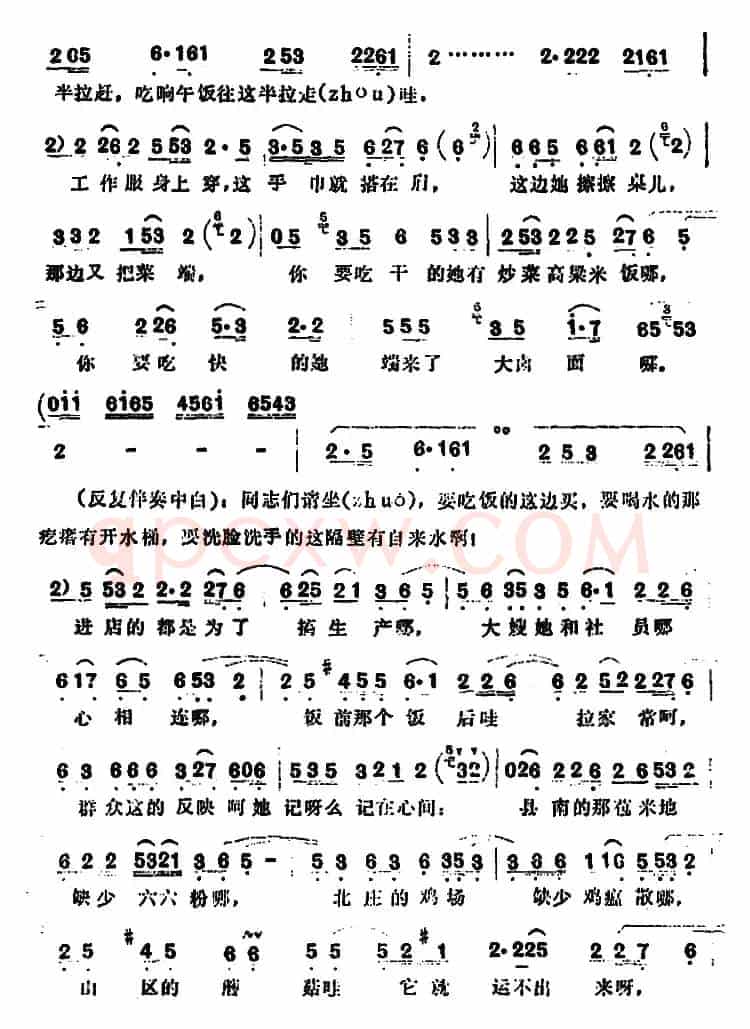 205 6·161 253 2261 2 ········ 2·222 2161
半拉赶,吃晌午饭往这半拉走(zhou)哇。
2) 2 262 2553 2·5 3·535 627 6 (6 2) 665 661 2 (6 2)
工作服身上穿,这手巾就搭在肩, 这边她擦擦桌儿,
332 153 2 (6 2) 05 5 35 6 533 253 225 276 5
那边又把菜端, 你要吃干的她有炒菜高粱米饭哪,
56 226 5·3 2·2 555 6 35 i·7 65 3 53
你要吃快的她端来了大卤面哪。
(0ii 6i65 456i 6543
2 - - - 2·5 6·161 253 2261
(反复伴奏中白):同志们请坐(zhuô),要吃饭的这边买,要喝水的那
疙瘩有开水桶,要洗脸洗手的这隔壁有自来水啊;
2) 5 532 2·2 276 625 1 36 5 56 353 56·1 226
进店的都是为了搞生产哪, 大嫂她和社员哪
617 65 653 2 25 #455 6·1 226 62522276
心相连哪, 饭前那个饭后哇 拉家常呵,
63 366 327 606 535 321 2 (5 32) 026 226 26532
群众这的反映呵她记呀么记在心间; 县南的那苞米地
622 5321 36 5 - 53 63 6 353 336 110 5532
缺少六六粉哪, 北庄的鸡场缺少鸡瘟散哪,
25 #45 66 535 52 #1 2·225 227 6
山区的蘑菇哇它就运不出来呀,
qpcxw.COM